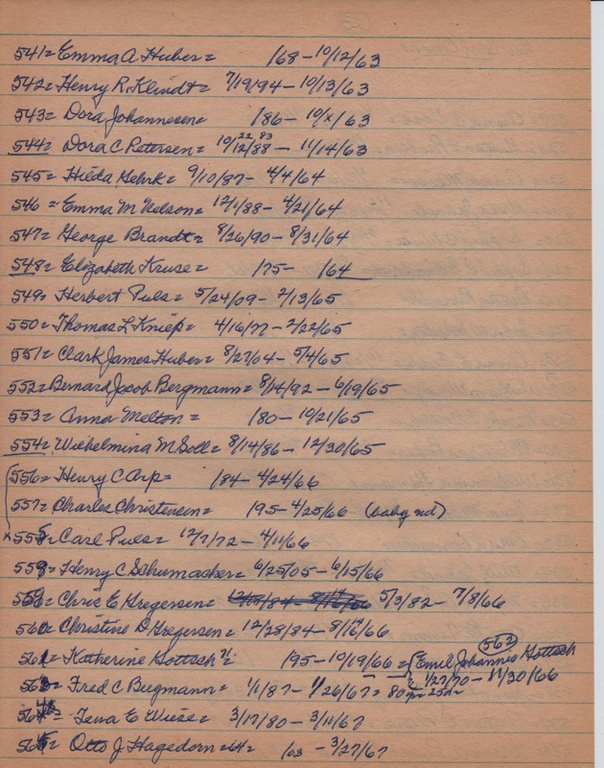 541= Emma A Huber = /68 - 10/12/63
542= Henry R. Klindt = 7/19/94 - 10/13/63
543= Dora Johannesen= /86 - 10/x/63
544= Dora C Petersen = 10/12/88 22 83 - 11/14/63
545= Hilda Gehrk = 9/10/87 - 4/4/64
546 = Emma M Nelson = 12/1/88 - 4/21/64
547= George Brandt = 8/26/90 - 8/31/64
548= Elizabeth Kruse = /75 - /64
549= Herbert Puls = 5/24/09 - 2/13/65
550= Thomas L Kniep = 4/16/77 - 2/22/65
551= Clark James Huber = 8/27/04 - 5/4/65
552= Bernard Jacob Bergmann = 8/14/92 - 6/19/65
553= Anna Melton = /80 - 10/21/65
554= Wilhelmina M Soll = 8/14/86 - 12/30/65
556= Henry C Arp= /84 - 4/24/66
557= Charles Christensen = 195 - 4/25/66 (baby nd)
x 555= Carl Puls = 12/7/72 - 4/11/66
559= Henry C Schumacher= 6/25/05 - 6/15/66
Chris E Gregersen= 12/28/84 - 8/17/66 5/3/82 - 7/8/66
560= Christine D Gregersen = 12/28/84 - 8/17/66
561= Katherine Gottsch 195 - 10/19/66 = 562 Emil Johannes Gottsch
563= Fred C Buegmann = 1/1/87 - 1/26/67 = 80 yr 25 da 1/27/70 - 11/30/66
564= E Wiese = 3/17/80 - 3/11/67
565= Otto J Hagedorn = /03 - 3/27/67